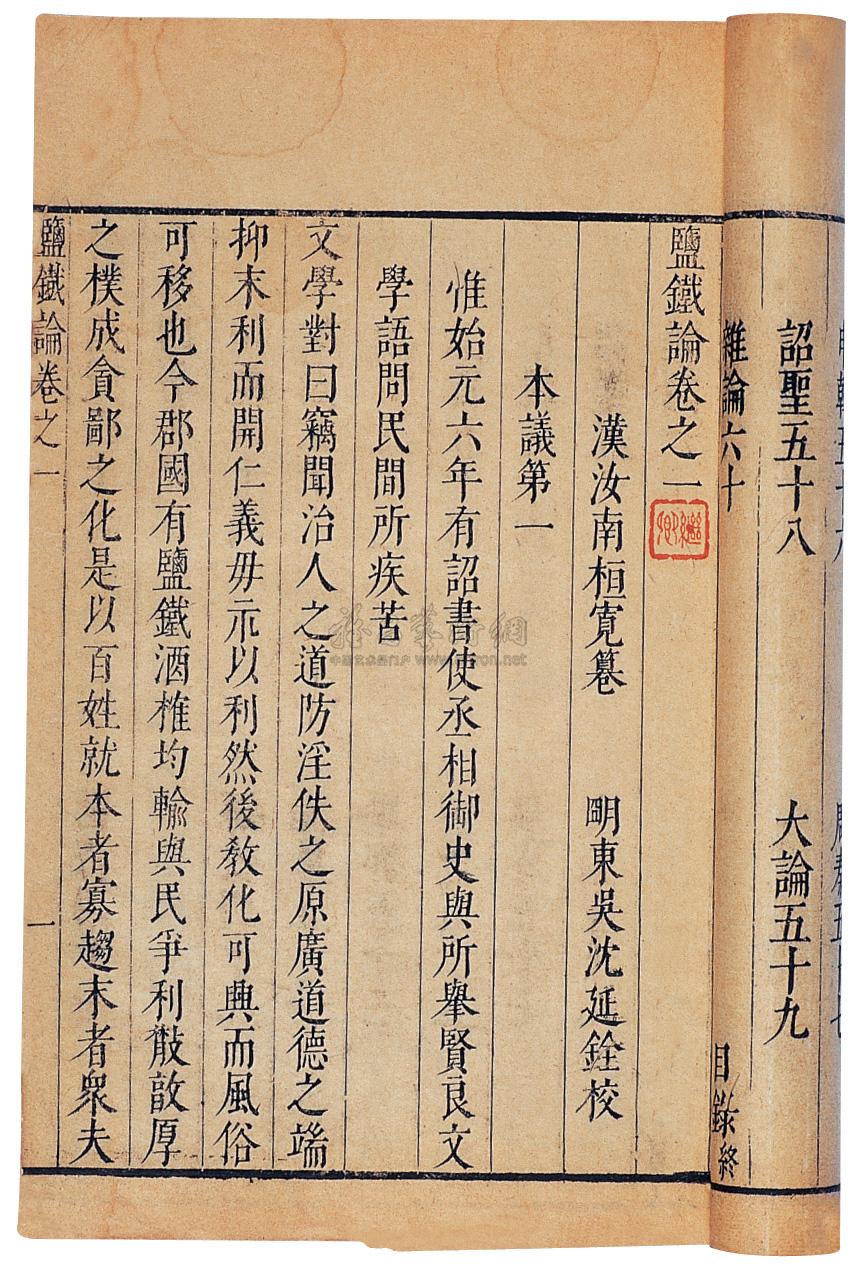 詔聖五十八 大論五十九
雜論六十
目錄終
鹽鐵論卷之一
漢汝南桓寬篹 明東吳沈延銓校
本議第一
惟始元六年有詔書使丞相御史與所舉賢良文
學語問民間所疾苦
文學對曰竊聞治人之道防淫佚之原廣道德之端
抑末利而開仁義毋示以利然後敎化可興而風俗
可移也今郡國有鹽鐵酒榷均輸與民爭利散敦厚
之樸成貪鄙之化是以百姓就本者寡趨末者衆夫
鹽鐵論卷之一 一
www.artron.net